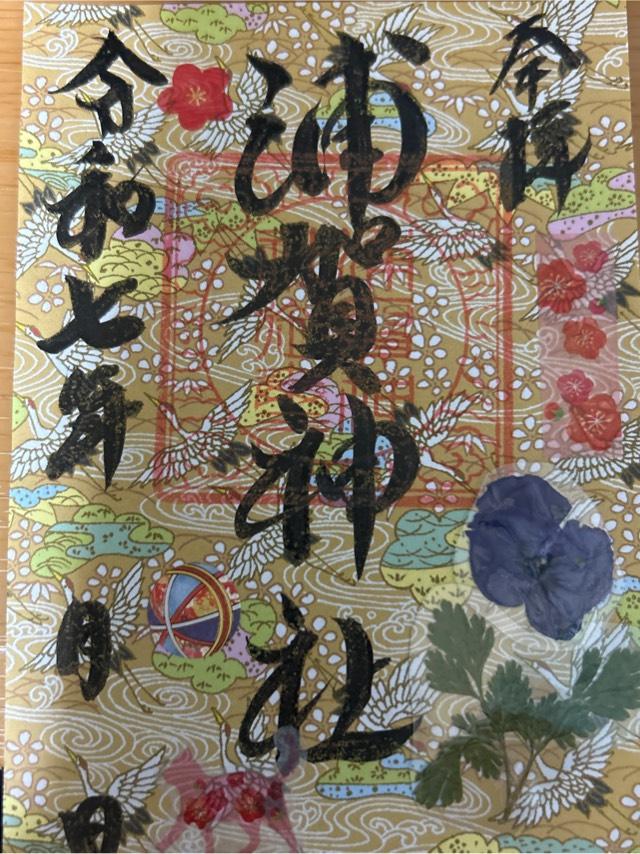 奉拝
浦賀神社
令和七年
月
日